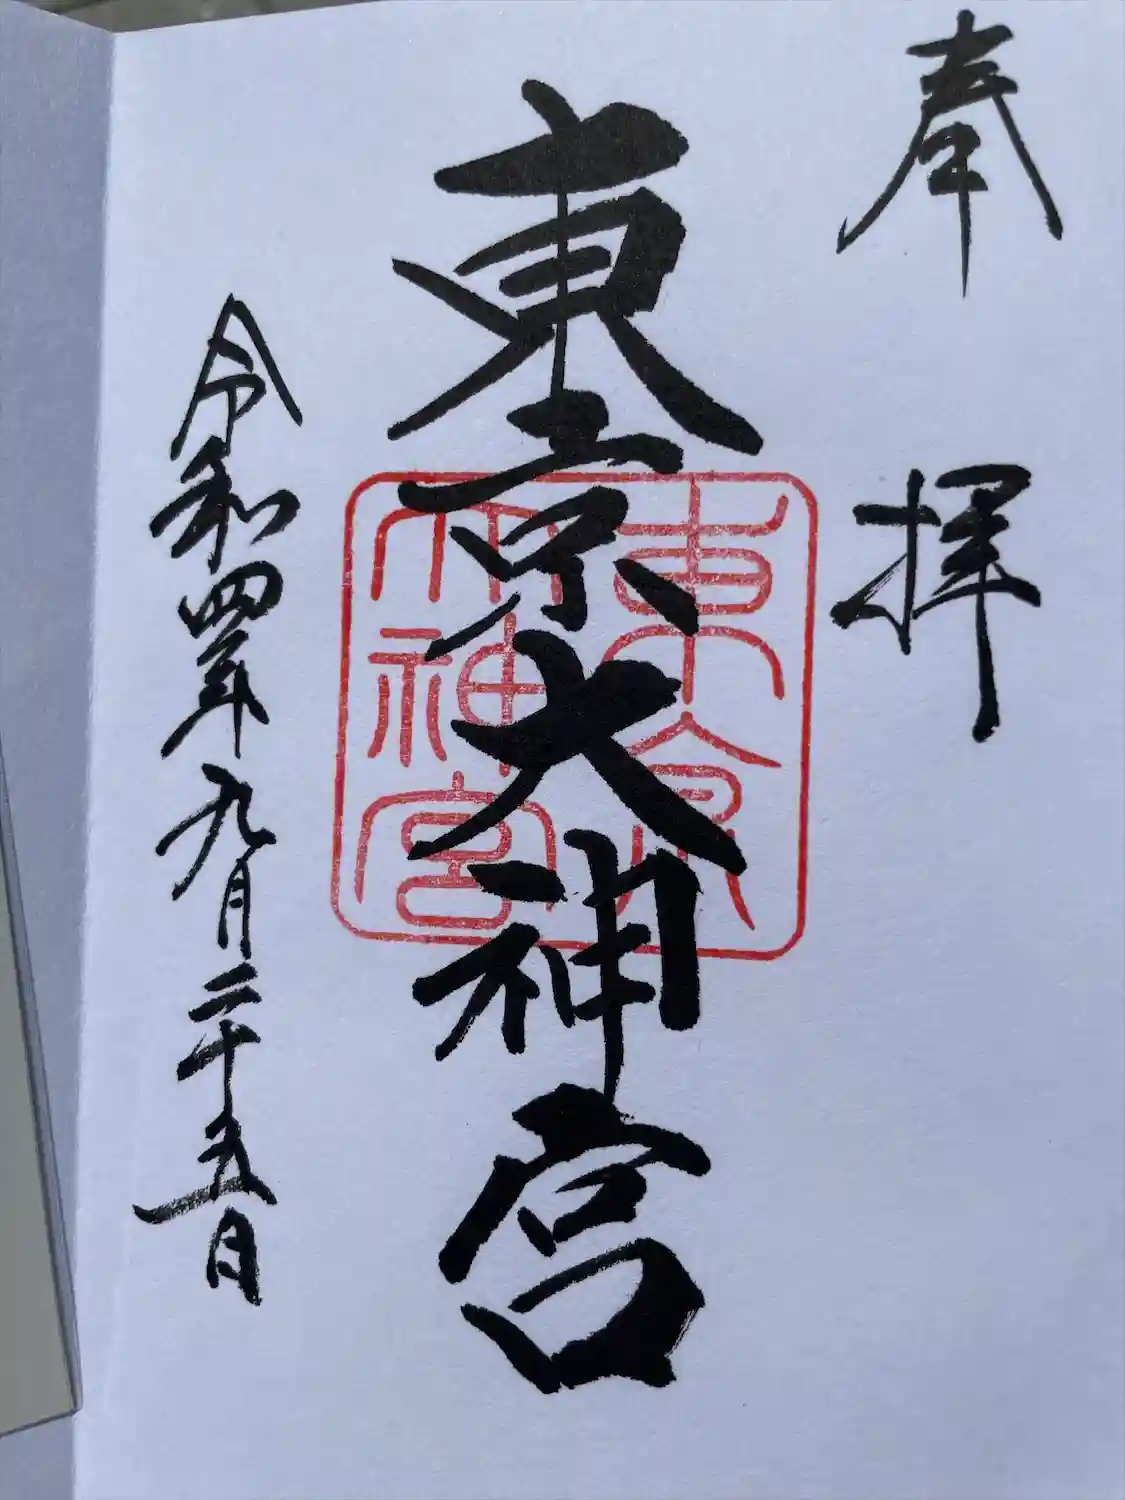 奉拝
東京大神宮
東京
大神宮
令和四年九月二十五日